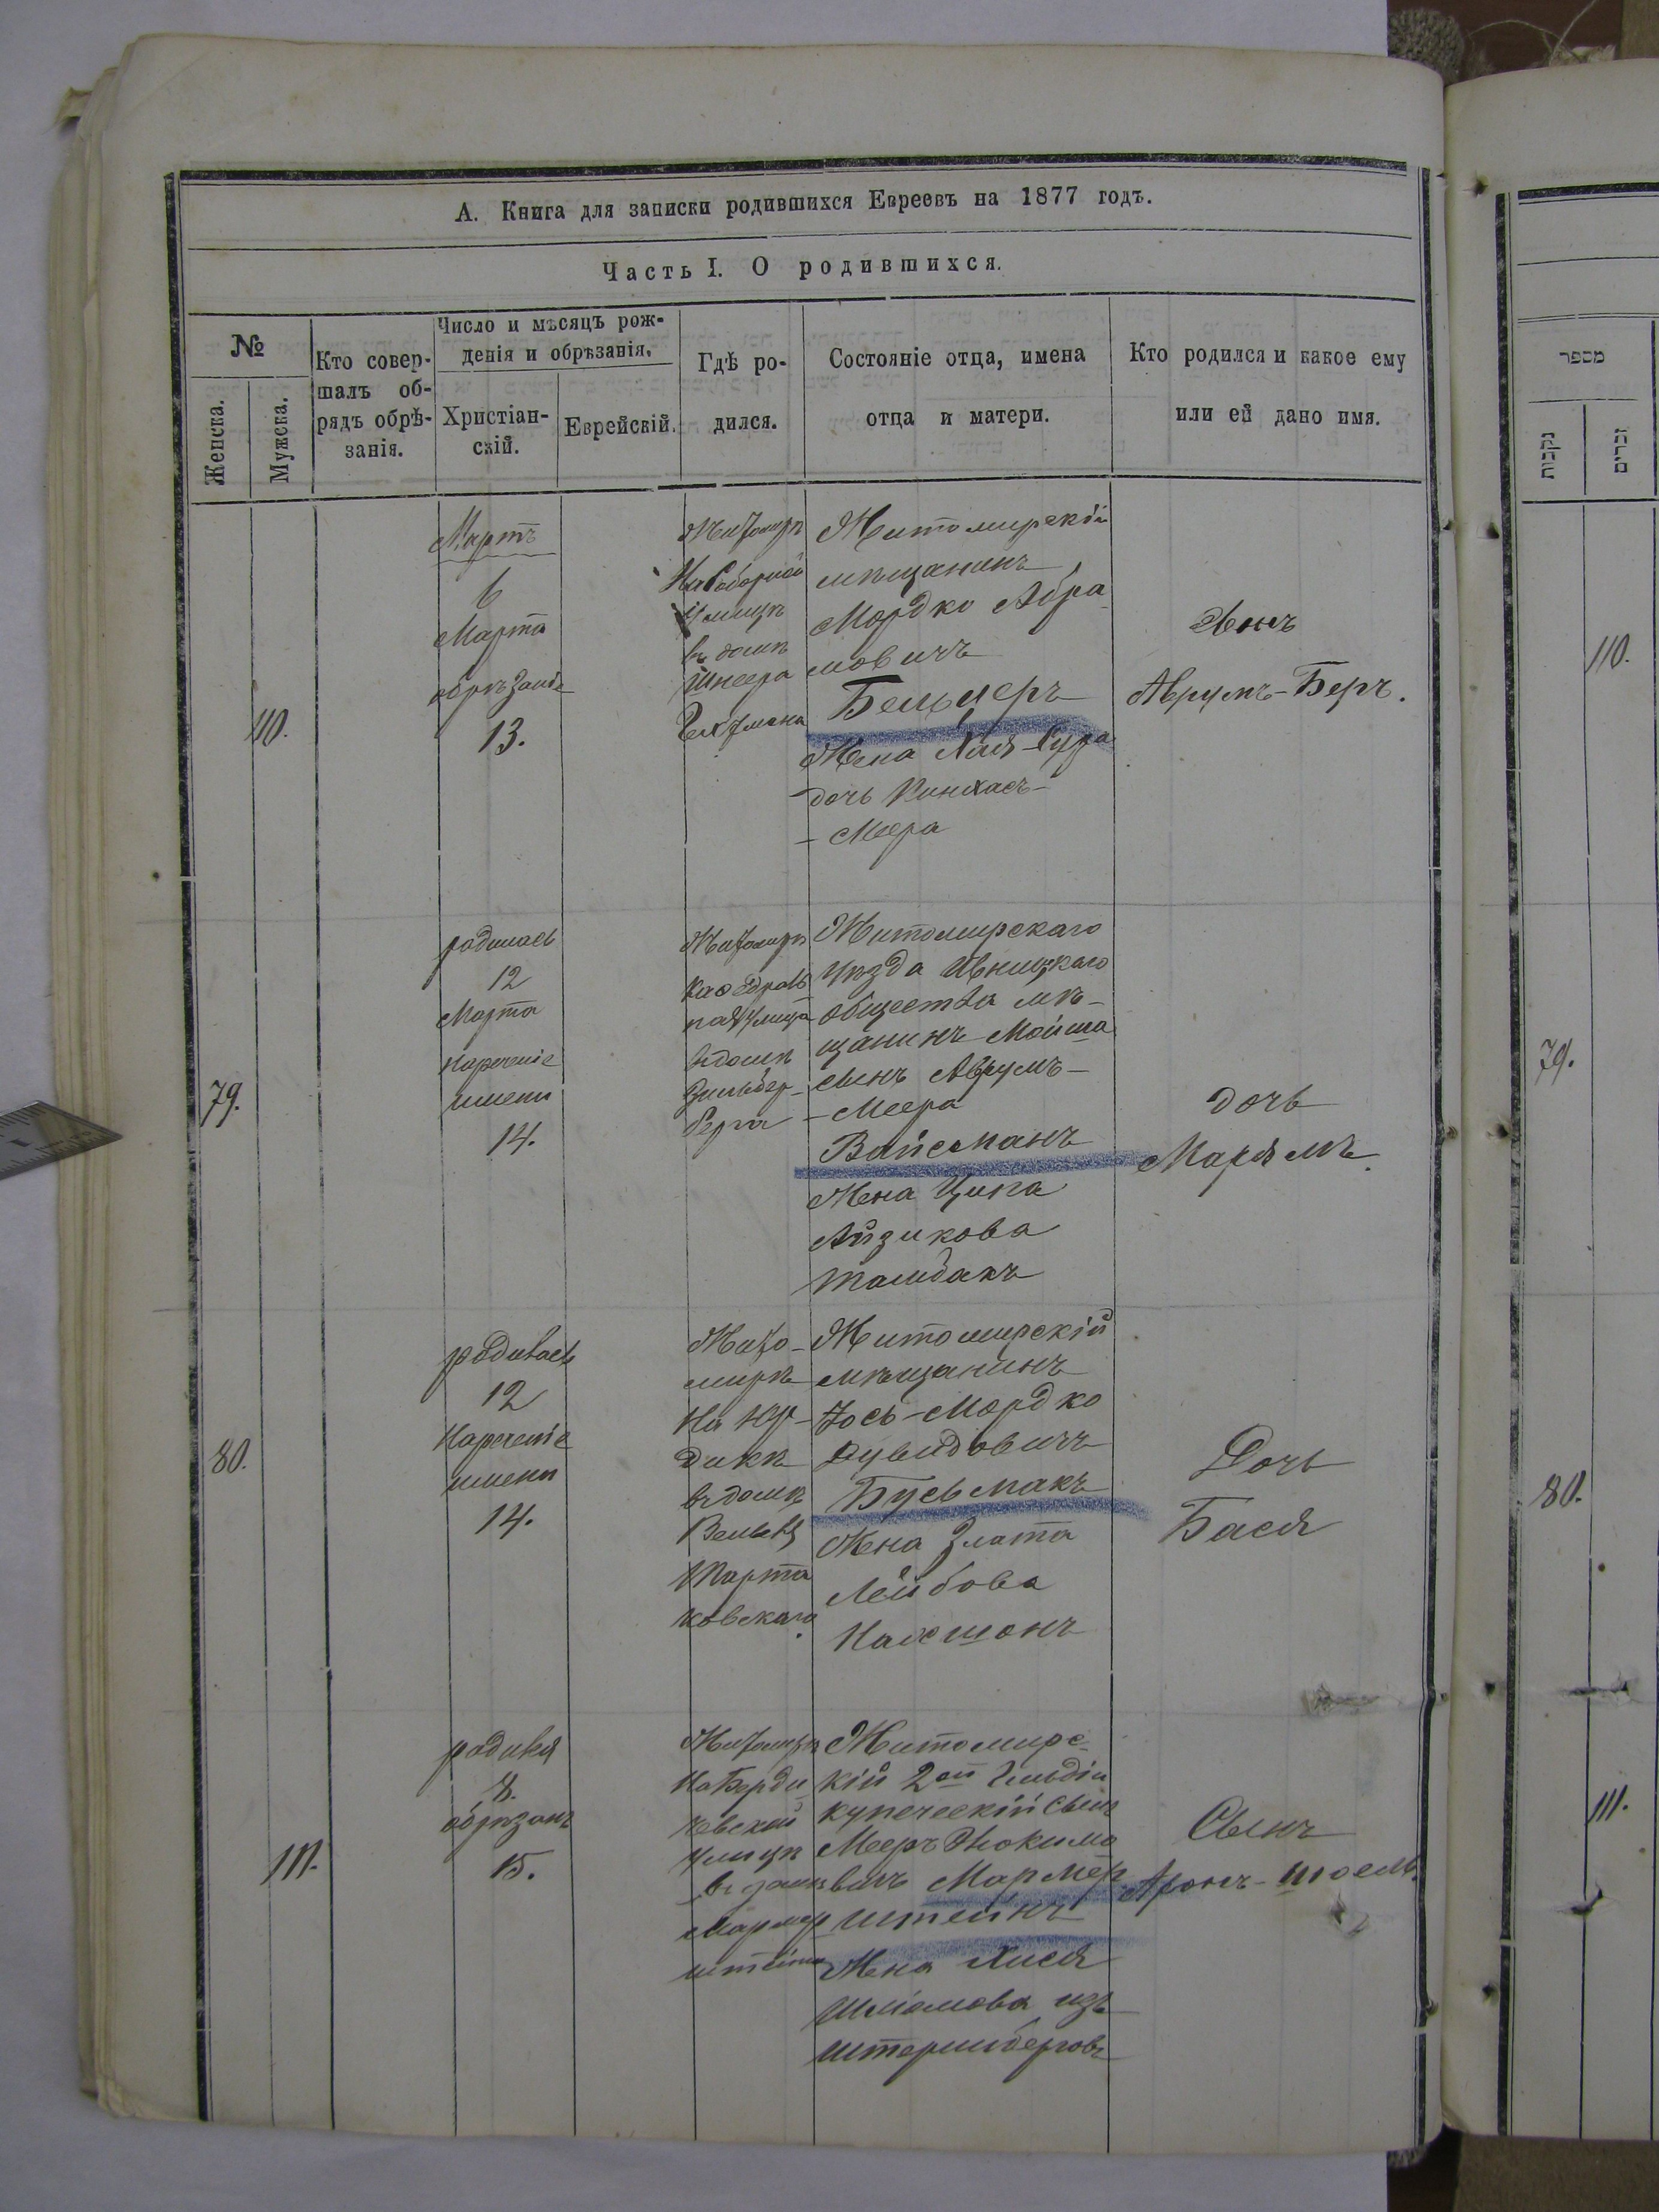 А. Книга для записки родившихся Евреевъ на 1877 годъ.
Часть I. О родившихся.
№
Женска.
Мужска.
Кто совер-
шалъ об-
рядъ обрѣ-
занія.
Число и мѣсяцъ рож-
денія и обрѣзанія.
Христіан-
скій.
Еврейскій.
Гдѣ ро-
дился.
Состояніе отца, имена
отца и матери.
Кто родился и какое ему
или ей дано имя.
110.
Мартъ
6
Марта
обрѣзаніе
13.
Житомиръ
На Соборной
улицѣ
въ домѣ
Шнеера
Гехтмана
Житомирскій
мѣщанинъ
Мордко Абра
мовичъ
Бельцеръ
Жена Хая-Сура
дочь Пинхасъ-
-Меера
Сынъ
Аврумъ-Беръ.
79.
родилась
12
Марта
нареченіе
имени
14.
Житомиръ
Каѳедраль
ная улица
въ домѣ
Зильбер-
берга
Житомирскаго
уѣзда Ивницкаго
общества мѣ-
щанинъ Мойша
сынъ Аврумъ-
-Меера
Вайсманъ
Жена Ципа
Айзикова
дочь
Маріямъ.
80.
родилась
12
Нареченіе
имени
14.
Жито-
миръ
На Юр-
дикѣ
въ домѣ
Марта
ковскаго.
Житомирскій
мѣщанинъ
Іось-Мордко
Дувидовичъ
Бусьмакъ
Жена Злата
Лейбова
Нахшонъ
Дочь
Бася
111.
родился
8.
обрѣзанъ
15.
Житомиръ
На Берди
чевской
улицѣ
въ домѣ
Мармер
штейна
Житомирс-
кій 2ой Гильдіи
купеческій сынъ
Мееръ Іокимо
вичъ Мармер
штейнъ
Жена Хися
Шліомова изъ
Штеринберговъ
Сынъ
Аронъ-Шоель.
מספר
נקבות
זכרים
110.
79.
80.
111.